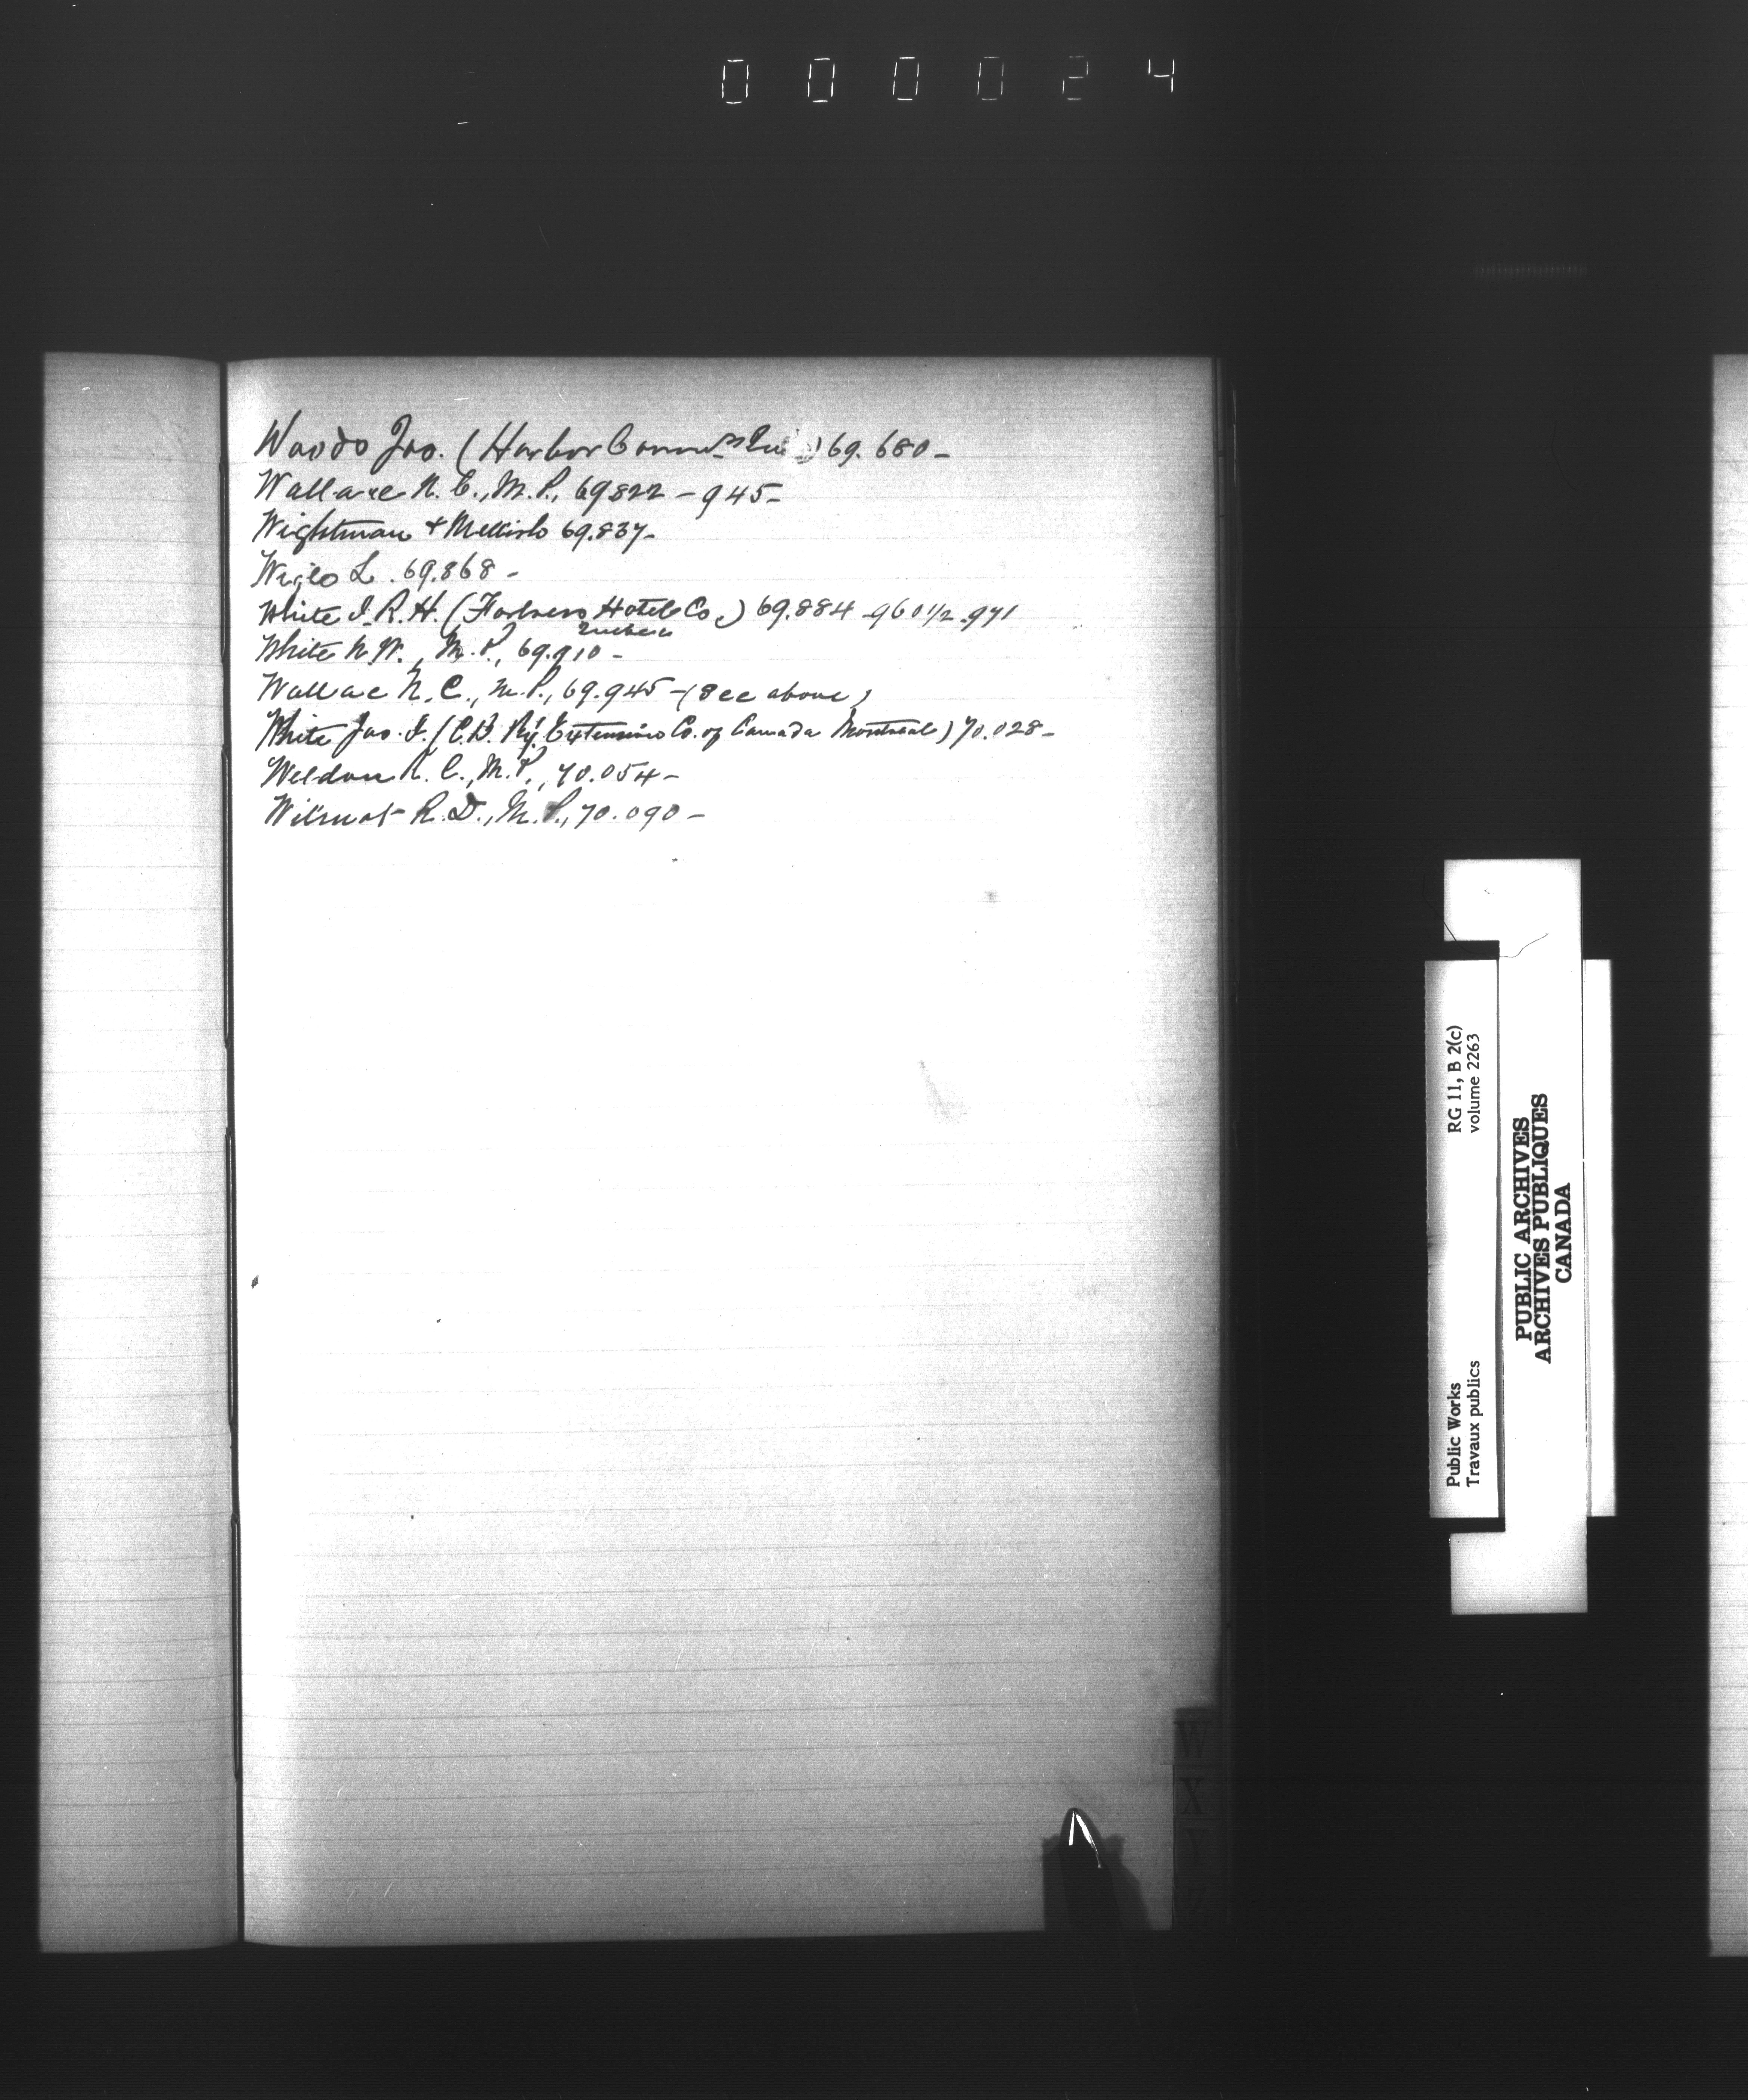 000024
Woods Jas. (Harbor Commrs Que) 69.680-
Wallace N. C., M.P., 69822-945-
Wightman + Mellish 69.837-
Wigle L. 69.868-
White J. R. H. (Fortress Hotel Co.) 69.884-960 1/2.971
Quebec
White N. W., M.P., 69.910-
Wallace N. C., M.P., 69.945-(See above)
White Jas. I. (C.D. Ry. Extension Co. of Canada Montreal) 70.028-
Weldon R. C., M.P., 70.054-
Wilmot R. D., M.P., 70.090-
W
X
Y
Public Works
Travaux publics
RG 11, B 2(c)
volume 2263
PUBLIC ARCHIVES
ARCHIVES PUBLIQUES
CANADA